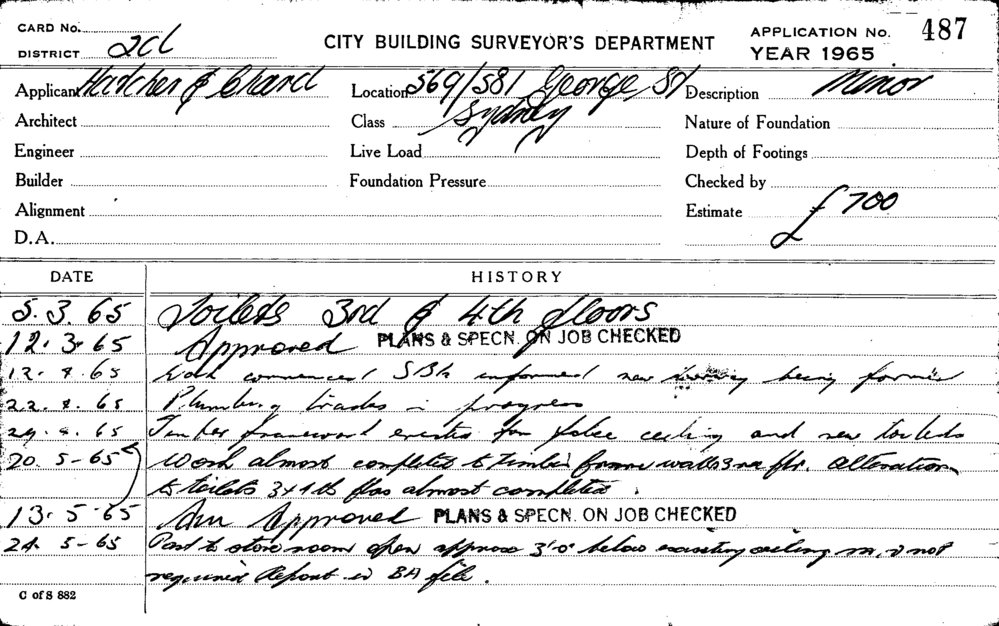 CARD No.
DISTRICT
CITY BUILDING SURVEYOR'S DEPARTMENT
APPLICATION No. 487
YEAR 1965
Applicant Hatcher & Chard
Location 569/581 George St
Sydney
Description Minor
Architect
Class
Nature of Foundation
Engineer
Live Load
Depth of Footings
Builder
Foundation Pressure
Checked by
Alignment
Estimate £700
D.A.
DATE HISTORY
5.3.65 Toilets 3rd & 4th floors
12.3.65 Approved PLANS & SPECN. ON JOB CHECKED
12.4.65 Work commenced informed new being formed
22.4.65 Plumbing trades in progress
29.4.65 Timber framework erected for false ceiling and new toilets
20.5-65 Work almost completed to timber frame walls flr. Alteration
to toilets 3x4th flrs almost completed.
13.5-65 Am Approved PLANS & SPECN. ON JOB CHECKED
24.5-65 to store room open approx 3'0" below existing ceiling not
required Report in BA file.
C of S 882